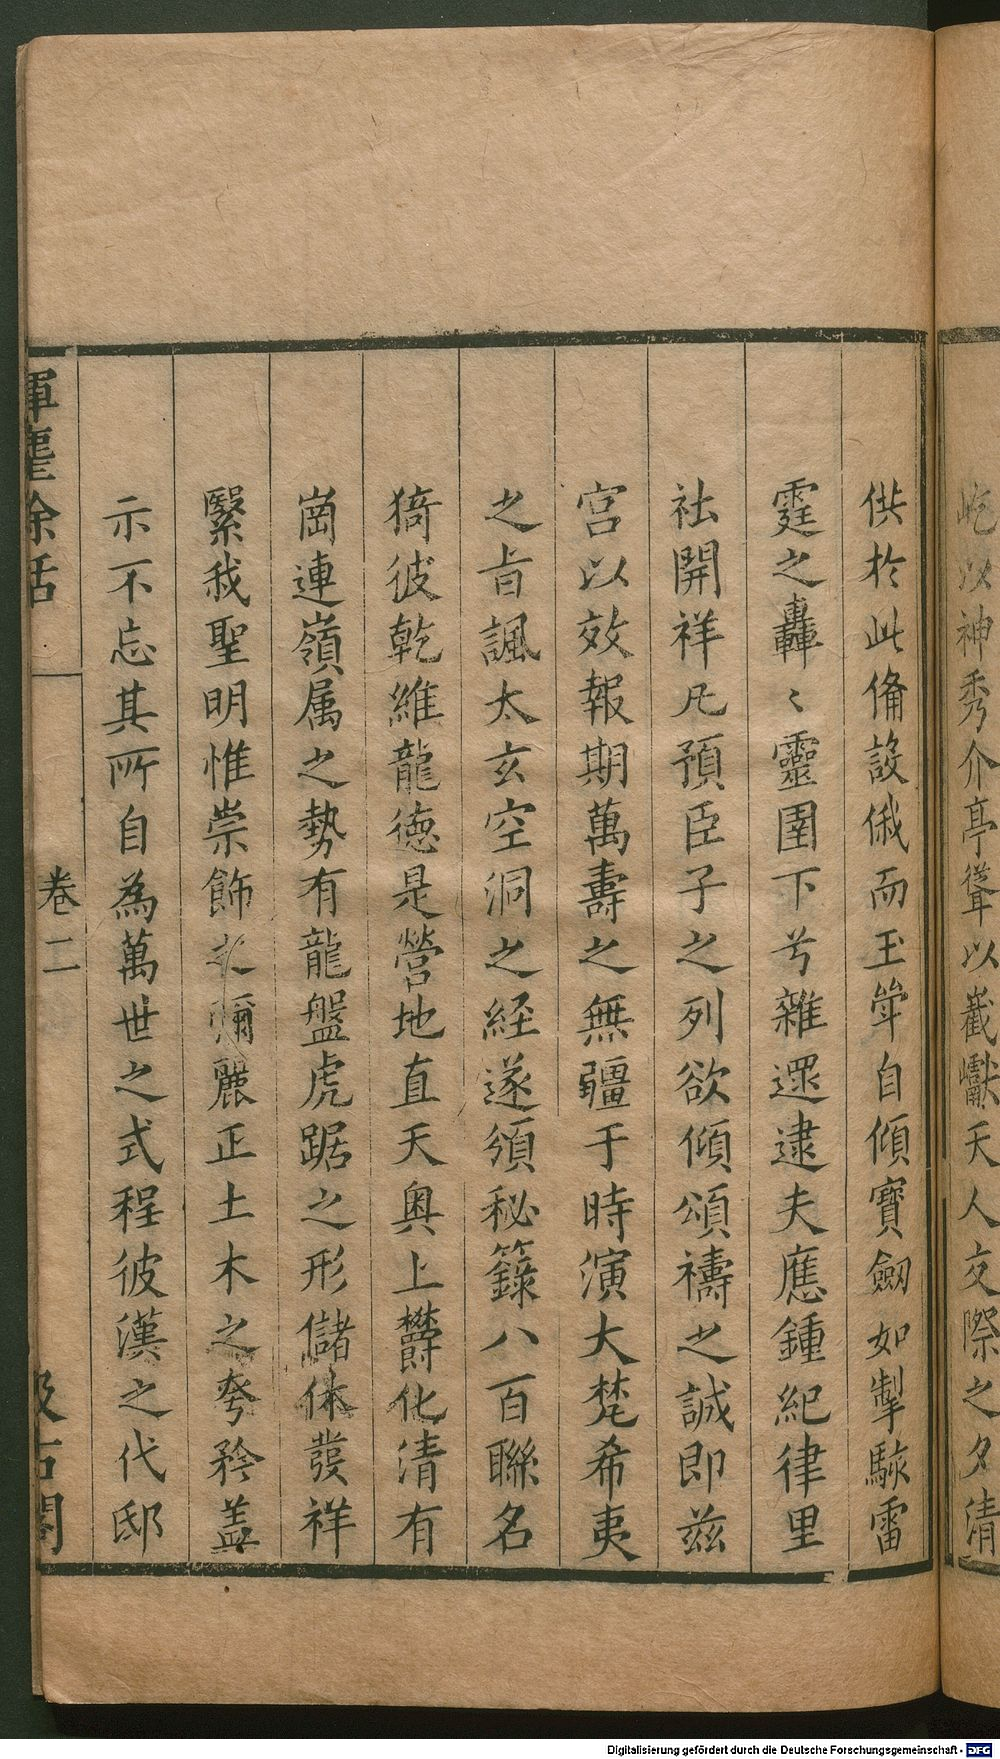 屹以神秀介亭聳以巀巘天人交際之夕清
供於此偹設俄而玉斝自傾寶劔如掣駭雷
霆之轟〻靈圉下兮雜遝逮夫應鍾紀律里
社開祥凡預臣子之列欲傾頌禱之誠即兹
宫以效報期萬壽之無疆于時演大梵希夷
之㫖諷太玄空洞之経遂頒秘籙八百聯名
猗彼乾維龍徳是營地直天奥上欝化清有
崗連嶺属之勢有龍盤虎踞之形儲休發祥
繄我聖明惟崇飾之彌麗正土木之夸矜盖
示不忘其所自為萬世之式程彼漢之代邸
揮麈餘話
卷二
汲古閣
Digitalisierung gefördert durch die Deutsche Forschungsgemeinschaft - DFG